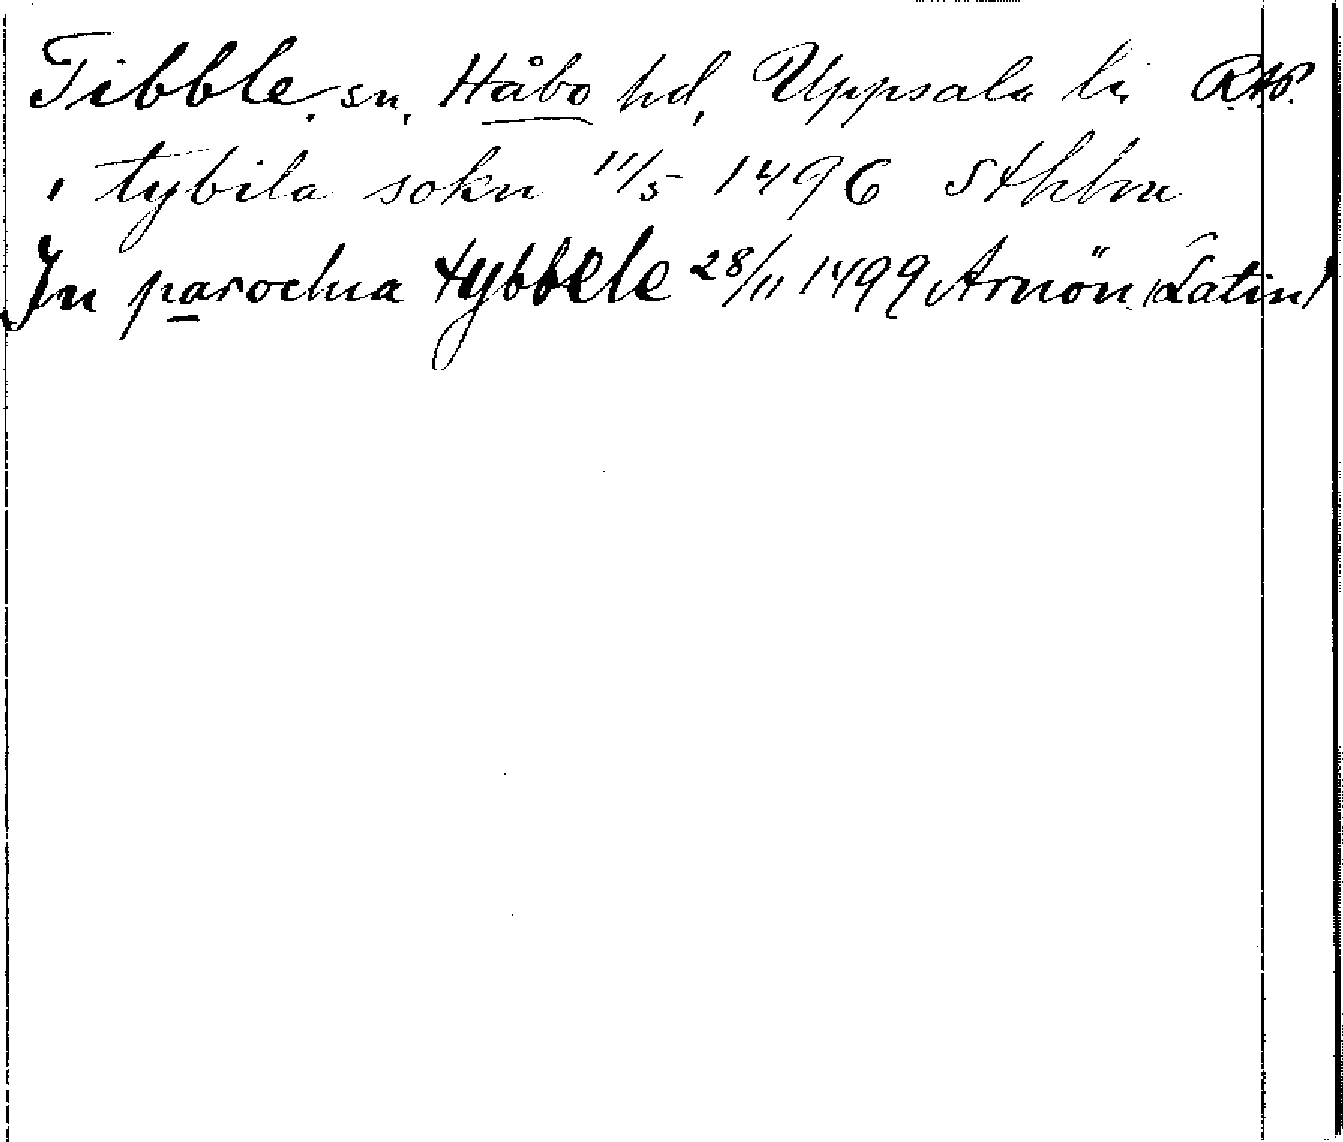 Tibble, sn, Håbo hd, Uppsala li RAP.
i tybila sokn 11/5 1496 Sthlm
In parochia tybbele 28/11 1499 Arnön (Latin)